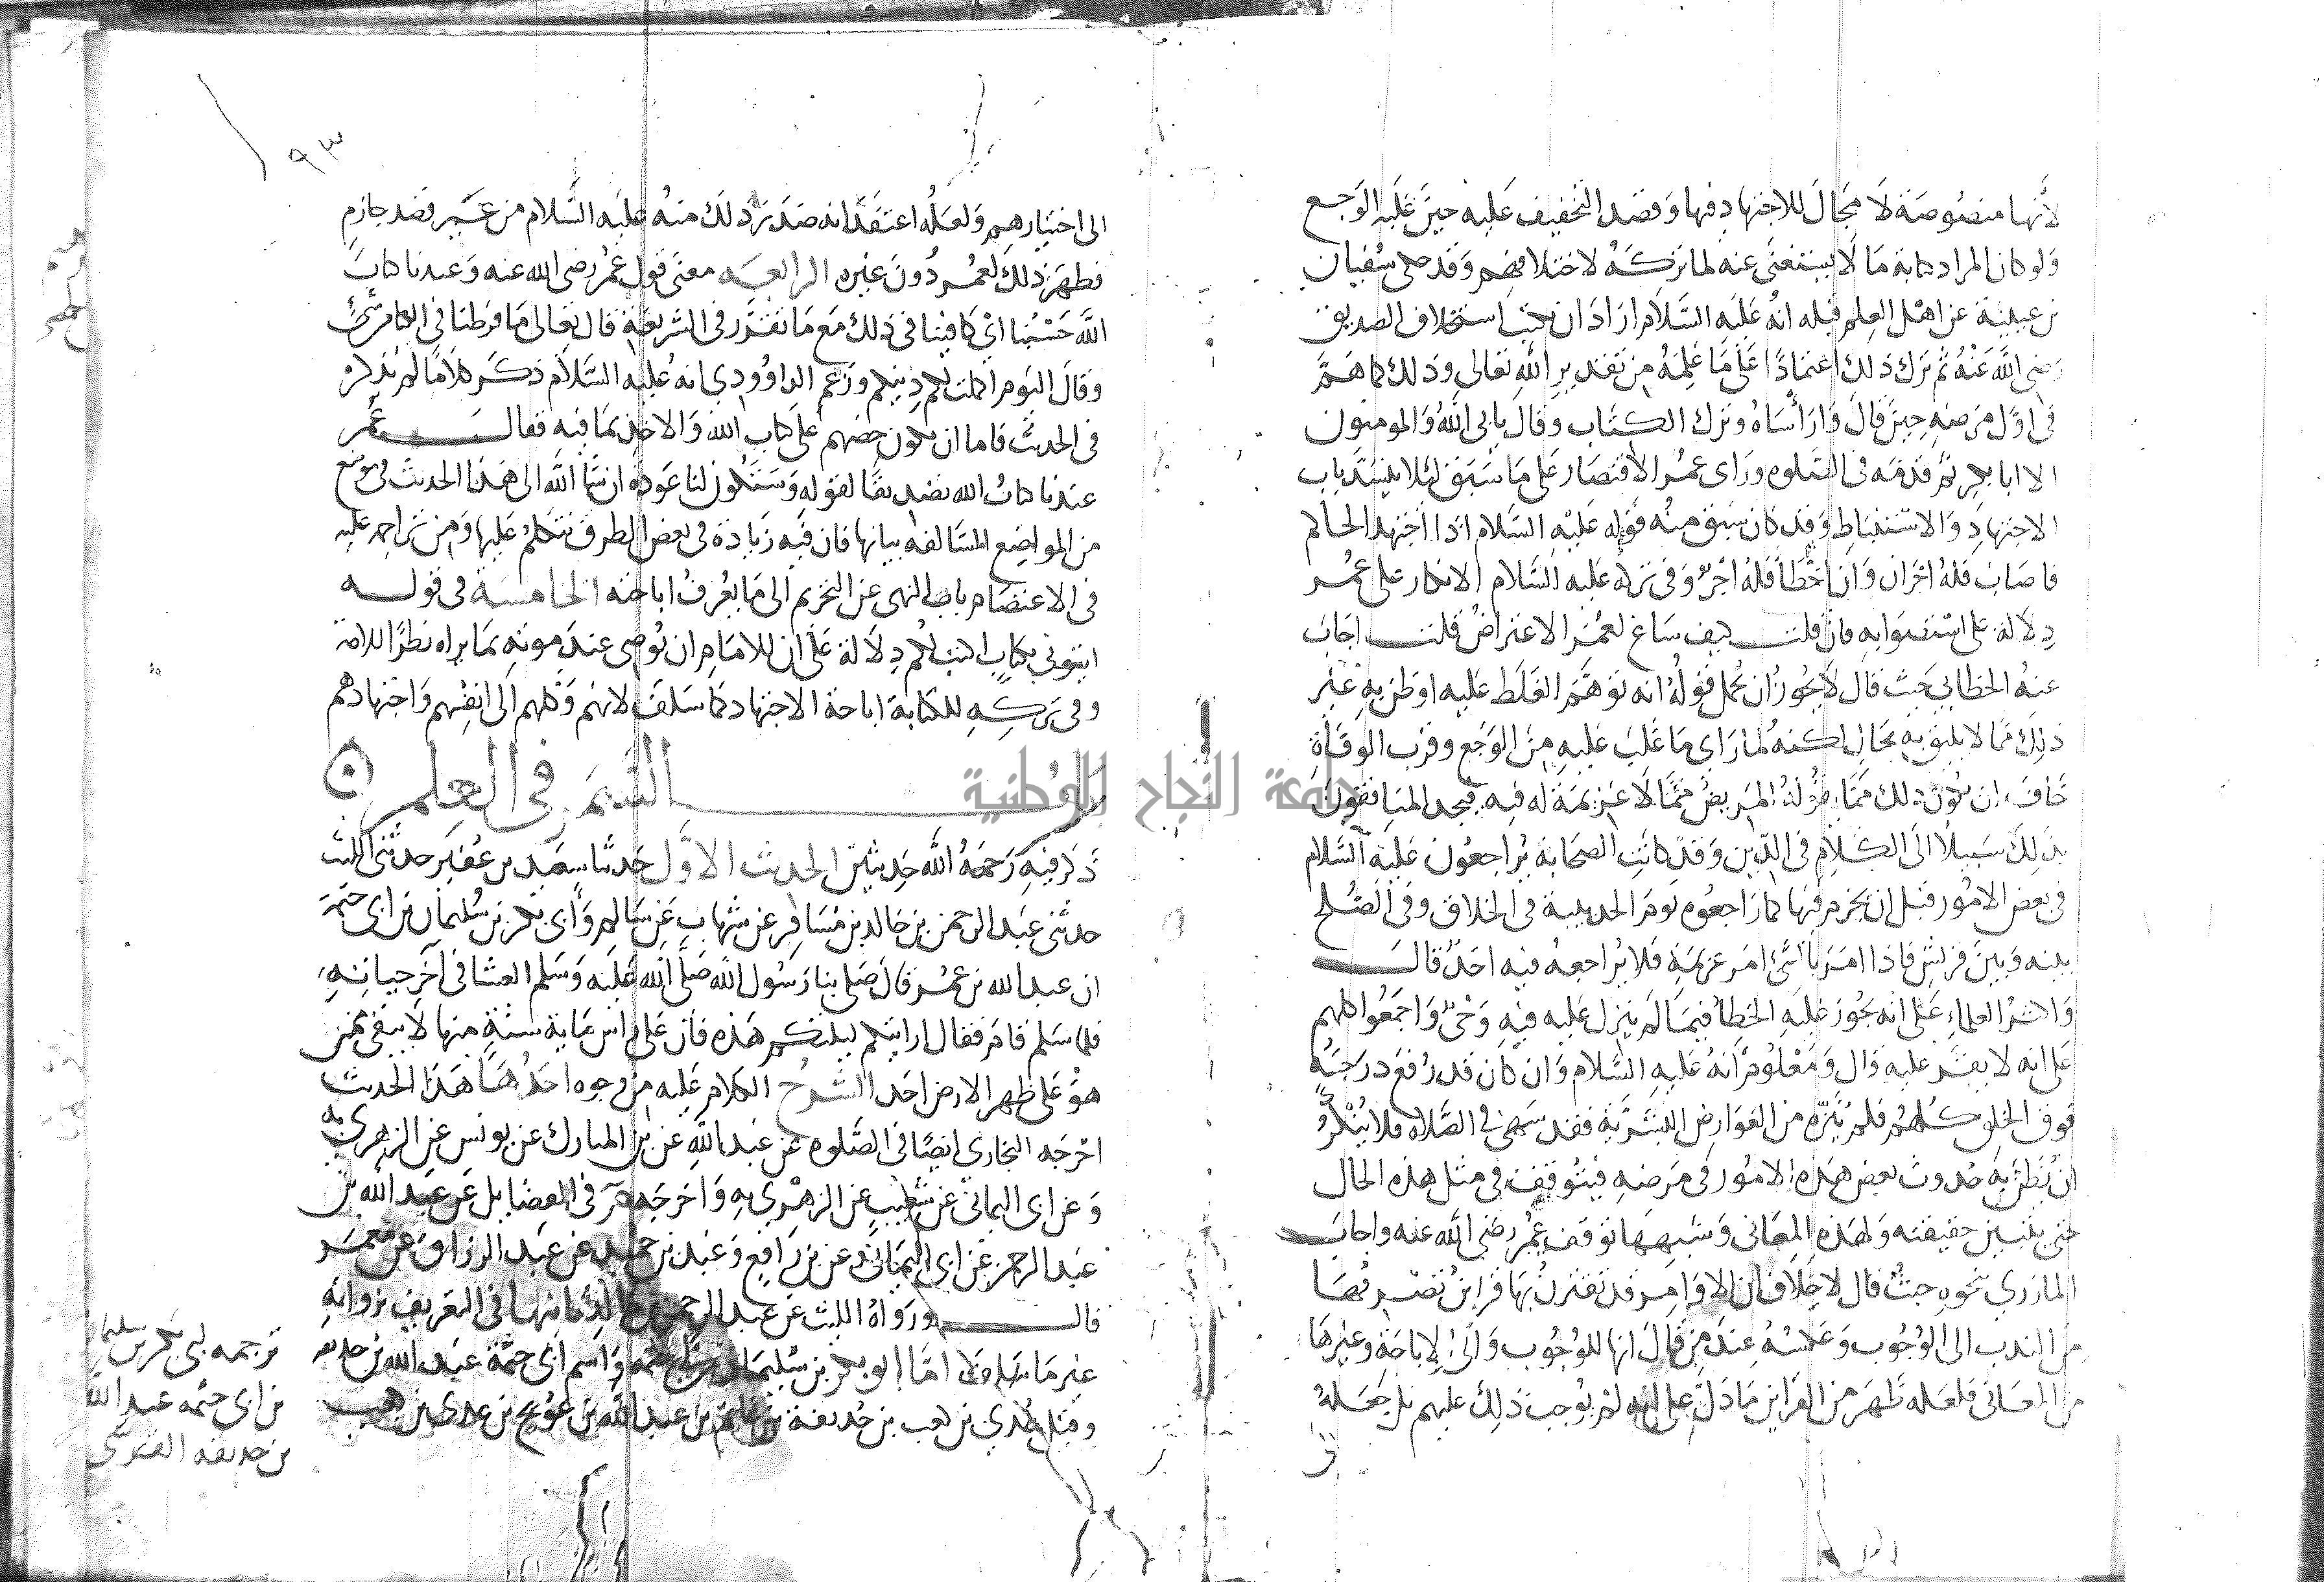 لأنها منصوصة لا مجال للاجتهاد فيها وقصد التخفيف عليه حين غلبه الوجع
ولو كان المراد كتابة ما لا يستغنى عنه لما تركه لاختلافهم وقد حكى سفيان
بن عيينة عن اهل العلم قبله انه عليه السلام اراد ان يكتب استخلاف الصديق
رضى الله عنه ثم ترك ذلك اعتمادا على ما علمه من تقدير الله تعالى وذلك كما هم
فى اول مرضه حين قال وارأساه وترك الكتاب وقال يابى الله والمومنون
الا ابا بكر ثم قدمه فى الصلوه وراى عمر الاقتصار على ما سبق لئلا ينسد باب
الاجتهاد والاستنباط وقد كان سبق منه قوله عليه السلام اذا اجتهد الحاكم
فاصاب فله اجران وان اخطأ فله اجر وفى تركه عليه السلام الانكار على عمر
دلالة على استصوابه فان قلت كيف ساغ لعمر الاعتراض قلت اجاب
عنه الخطابي حيث قال لا يجوز ان يحمل قوله انه توهم الغلط عليه او ظن به غير
ذلك مما لا يليق به بحال لكنه لما راى ما غلب عليه من الوجع وقرب الوفاة
خاف ان يكون ذلك مما يقوله المريض مما لا عزيمة له فيه فيجد المنافقون
بذلك سبيلا الى الكلام فى الدين وقد كانت الصحابة يراجعون عليه السلام
فى بعض الامور قبل ان يجزم فيها كما راجعوه يوم الحديبية فى الحلاق وفى الصلح
بينه وبين قريش فاذا امر بالشئ امر عزيمة فلا يراجعه فيه احد قال
واكثر العلماء على انه يجوز عليه الخطأ فيما لم ينزل عليه فيه وحي واجمعوا كلهم
على انه لا يقر عليه قال ومعلوم انه عليه السلام وان كان قد رفع درجته
فوق الخلق كلهم فلم ينزه من العوارض البشرية فقد سهى فى الصلاه فلا ينكر
ان يظن به حدوث بعض هذه الامور فى مرضه فيتوقف فى مثل هذه الحال
حتى يتبين حقيقته ولهذه المعانى وشبهها توقف عمر رضى الله عنه واجاب
المازري بنحوه حيث قال لا خلاف ان الاوامر قد تقترن بها قراين تصرفها
من الندب الى الوجوب وعكسه عند من قال انها للوجوب والى الاباحة وغيرها
من المعانى فلعله ظهر من القراين ما دل على انه لم يوجب ذلك عليهم بل جعله
٩٣
الى اختيارهم ولعله اعتقد انه صدر ذلك منه عليه السلام من غير قصد جازم
فظهر ذلك لعمر دون غيره الرابعه معنى قول عمر رضى الله عنه وعندنا كتاب
الله حسبنا اى كافينا فى ذلك مع ما تقرر فى الشريعة قال تعالى ما فرطنا فى الكتاب من شئ
وقال اليوم اكملت لكم دينكم وزعم الداوودي انه عليه السلام ذكر كلاما لم يذكره
فى الحديث فاما ان يكون حضهم على كتاب الله والاخذ بما فيه فقال عمر
عندنا كتاب الله تصديقا لقوله وستكون لنا عودة ان شا الله الى هذا الحديث فى موضع
من المواضع السالفه بيانها فان فيه زيادة فى بعض الطرق نتكلم عليها ومن تراجمه عليه
فى الاعتصام باب النهى عن التحريم الى ما يعرف اباحته الخامسة فى قوله
ايتونى بكتاب اكتب لكم دلالة على ان للامام ان يوصى عند موته بما يراه نظرا للامة
وفى تركه للكتابة اباحة الاجتهاد كما سلف لانه وكلهم الى انفسهم واجتهادهم
باب السمر فى العلم
ذكر فيه رحمه الله حديثين الحديث الاول حدثنا سعيد بن عفير حدثنى الليث
حدثنى عبد الرحمن بن خالد بن مسافر عن شهاب عن سالم وأبى بكر بن سليمان بن ابى حثمة
ان عبد الله بن عمر قال صلى بنا رسول الله صلى الله عليه وسلم العشا فى آخر حياته
فلما سلم قام فقال ارايتكم ليلتكم هذه فان على راس ماية سنة منها لا يبقى ممن
هو على ظهر الارض احد الشرح الكلام عليه من وجوه احدها هذا الحديث
اخرجه البخارى ايضا فى الصلوه عن عبد الله عن ابن المبارك عن يونس عن الزهرى به
وعن ابى اليمان عن شعيب عن الزهري به واخرجه م فى الفضايل عن عبد الله بن
عبد الرحمن عن ابى اليمان وعن بن رافع وعبد بن حميد عن عبد الرزاق عن معمر
قال ورواه الليث عن عبد الرحمن بن خالد ثانيها فى التعريف برواته
غير ما سلف اما ابو بكر بن سليمان بن ابى حثمه واسم ابى حثمة عبد الله بن حذيفه
وقيل عدي بن كعب بن حذيفة بن غانم بن عبد الله بن عويج بن عدى بن كعب
ترجمه ابى بكر بن سليمان
بن ابى حثمه عبد الله
بن حذيفه القرشى
جامعة النجاح الوطنية